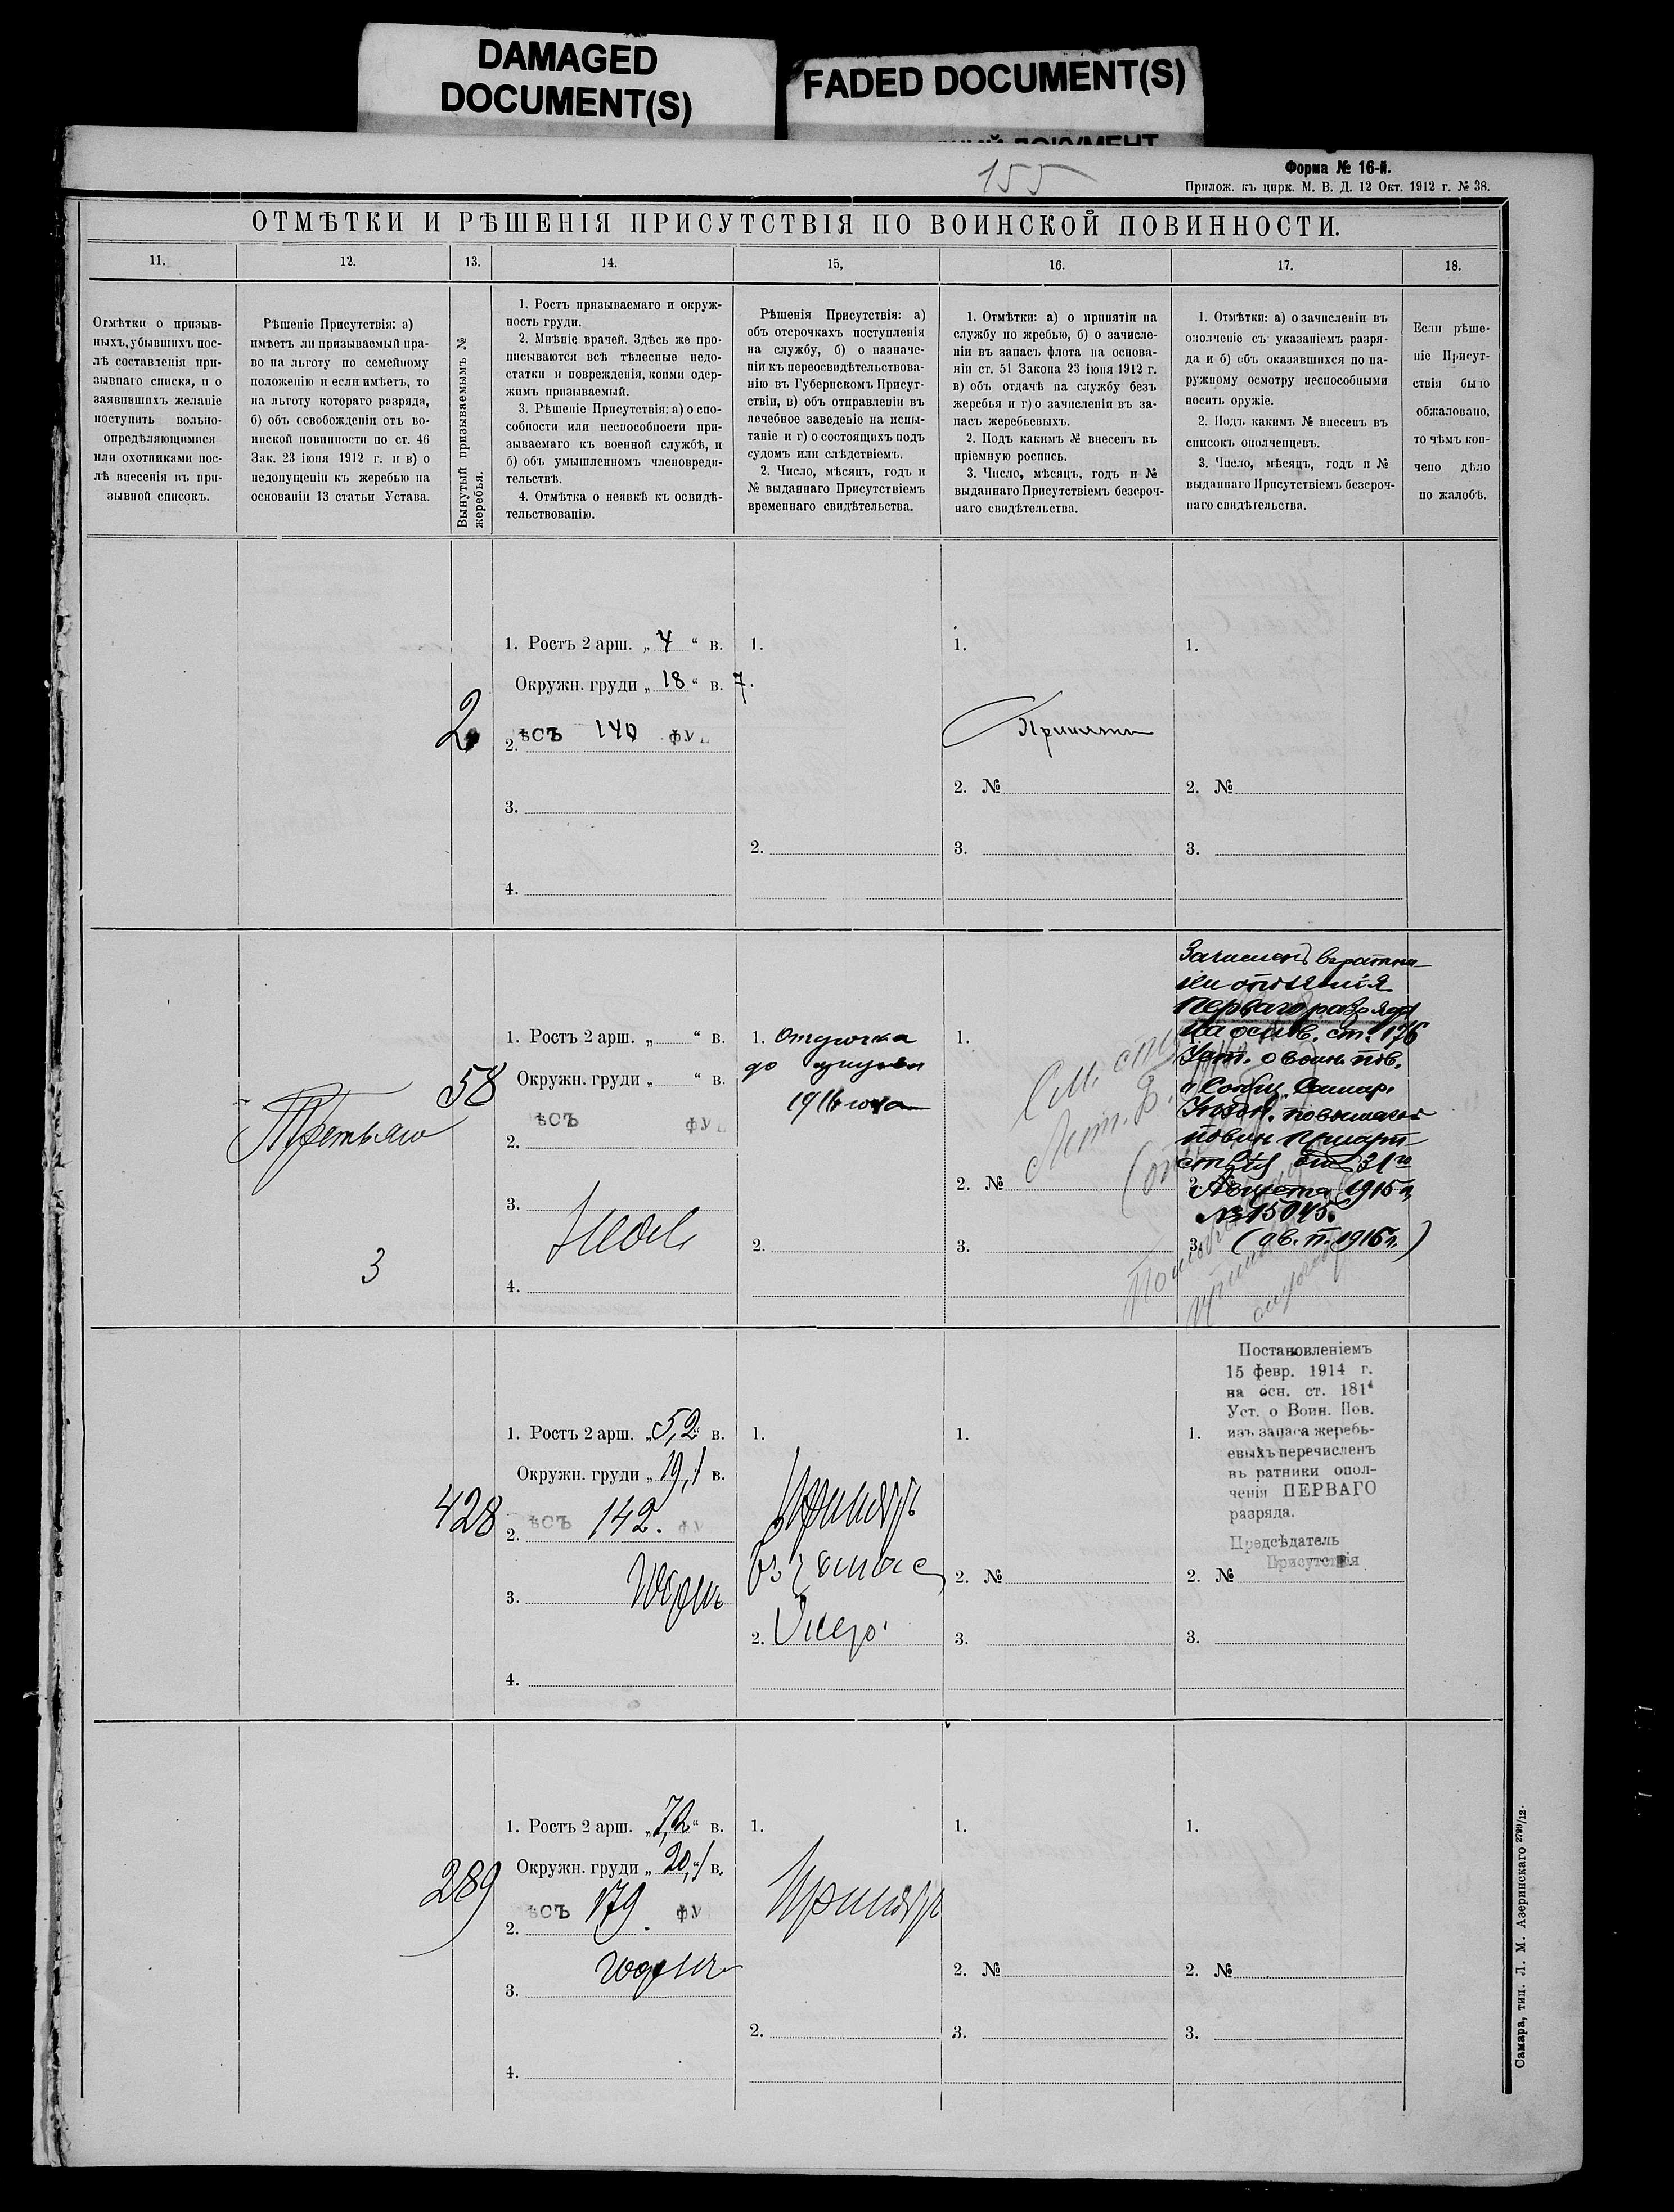 DAMAGED
DOCUMENT(S)
FADED DOCUMENT(S)
155
Форма № 16-й.
Прилож. къ цирк. М. В. Д. 12 Окт. 1912 г. № 38.
ОТМѢТКИ И РѢШЕНІЯ ПРИСУТСТВІЯ ПО ВОИНСКОЙ ПОВИННОСТИ.
11.
12.
13.
14.
15,
16.
17.
18.
Отмѣтки о призыв-
ныхъ, убывшихъ пос-
лѣ составленія при-
зывнаго списка, и о
заявившихъ желаніе
поступить вольно-
опредѣляющимися
или охотниками пос-
лѣ внесенія въ при-
зывной списокъ.
Рѣшеніе Присутствія: а)
имѣетъ ли призываемый пра-
во на льготу по семейному
положенію и если имѣетъ, то
на льготу котораго разряда,
б) объ освобожденіи отъ во-
инской повинности по ст. 46
Зак. 23 іюня 1912 г. и в) о
недопущеніи къ жеребью на
основаніи 13 статьи Устава.
Вынутый призываемымъ №
жеребья.
1. Ростъ призываемаго и окруж-
ность груди.
2. Мнѣніе врачей. Здѣсь же про-
писываются всѣ тѣлесные недо-
статки и поврежденія, коими одер-
жимъ призываемый.
3. Рѣшеніе Присутствія: а) о спо-
собности или неспособности при-
зываемаго къ военной службѣ, и
б) объ умышленномъ членовреди-
тельствѣ.
4. Отмѣтка о неявкѣ къ освидѣ-
тельствованію.
Рѣшенія Присутствія: а)
объ отсрочкахъ поступленія
на службу, б) о назначе-
ніи къ переосвидѣтельствова-
нію въ Губернскомъ Присут-
ствіи, в) объ отправленіи въ
лечебное заведеніе на испы-
таніе и г) о состоящихъ подъ
судомъ или слѣдствіемъ.
2. Число, мѣсяцъ, годъ и
№ выданнаго Присутствіемъ
временнаго свидѣтельства.
1. Отмѣтки: а) о принятіи на
службу по жребью, б) о зачисле-
ніи въ запасъ флота на основа-
ніи ст. 51 Закона 23 іюня 1912 г.
в) объ отдачѣ на службу безъ
жеребья и г) о зачисленіи въ за-
пасъ жеребьевыхъ.
2. Подъ какимъ № внесенъ въ
пріемную роспись.
3. Число, мѣсяцъ, годъ и №
выданнаго Присутствіемъ безсроч-
наго свидѣтельства.
1. Отмѣтки: а) о зачисленіи въ
ополченіе съ указаніемъ разря-
да и б) объ оказавшихся по на-
ружному осмотру неспособными
носить оружіе.
2. Подъ какимъ № внесенъ въ
списокъ ополченцевъ.
3. Число, мѣсяцъ, годъ и №
выданнаго Присутствіемъ безсроч-
наго свидѣтельства.
Если рѣше-
ніе Присут-
ствія было
обжаловано,
то чѣмъ кон-
чено дѣло
по жалобѣ.
2
1. Ростъ 2 арш. „ 4 “ в.
Окружн. груди „ 18 “ в. 7.
2. ѣсъ 140 фу
3.
4.
1.
2.
1.
Принятъ
2. №
3.
1.
2. №
3.
Третьяго
3
58
1. Ростъ 2 арш. „ “ в.
Окружн. груди „ “ в.
2. ѣсъ фу
3.
4.
1. Отсрочка
до
1916 года
2.
1.
См.
Лит. В.
2. №
3.
Зачисленъ въ ратни-
ки ополченія
Перваго разряда
на основ. ст. 176
Уст. о воин. пов.
и Сообщ. Самар.
повинн Присут-
ствія отъ 31го
Августа 1915 г.
№ 15045.
3. (
428
1. Ростъ 2 арш. „ 5,2 “ в.
Окружн. груди „ 19,1 в.
2. ѣсъ 142. фу
3. Годенъ
4.
1.
Принятъ
въ запас
2.
1.
2. №
3.
Постановленіемъ
15 февр. 1914 г.
на осн. ст. 181⁴
Уст. о Воин. Пов.
1. изъ запаса жеребь-
евыхъ перечисленъ
въ ратники опол-
ченія ПЕРВАГО
разряда.
Предсѣдатель
Присутствія
2. №
3.
289
1. Ростъ 2 арш. „ 7,2 “ в.
Окружн. груди „ 20,1 в.
2. ѣсъ 179. фу
3. годенъ
4.
1.
Принятъ
2.
1.
2. №
3.
1.
2. №
3.
Самара, тип. Л. М. Азеринскаго 2799/12.